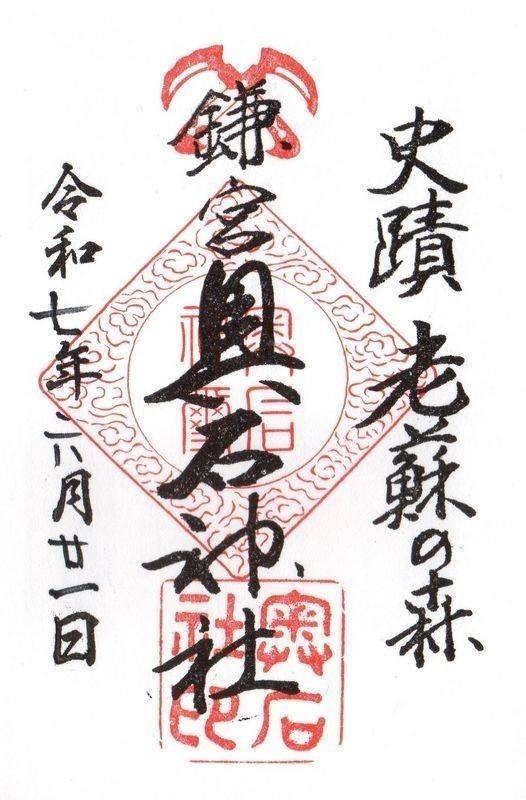 史蹟 老蘇の森
鎌宮奥石神社
令和七年六月廿一日
奥石神璽
奥石社印